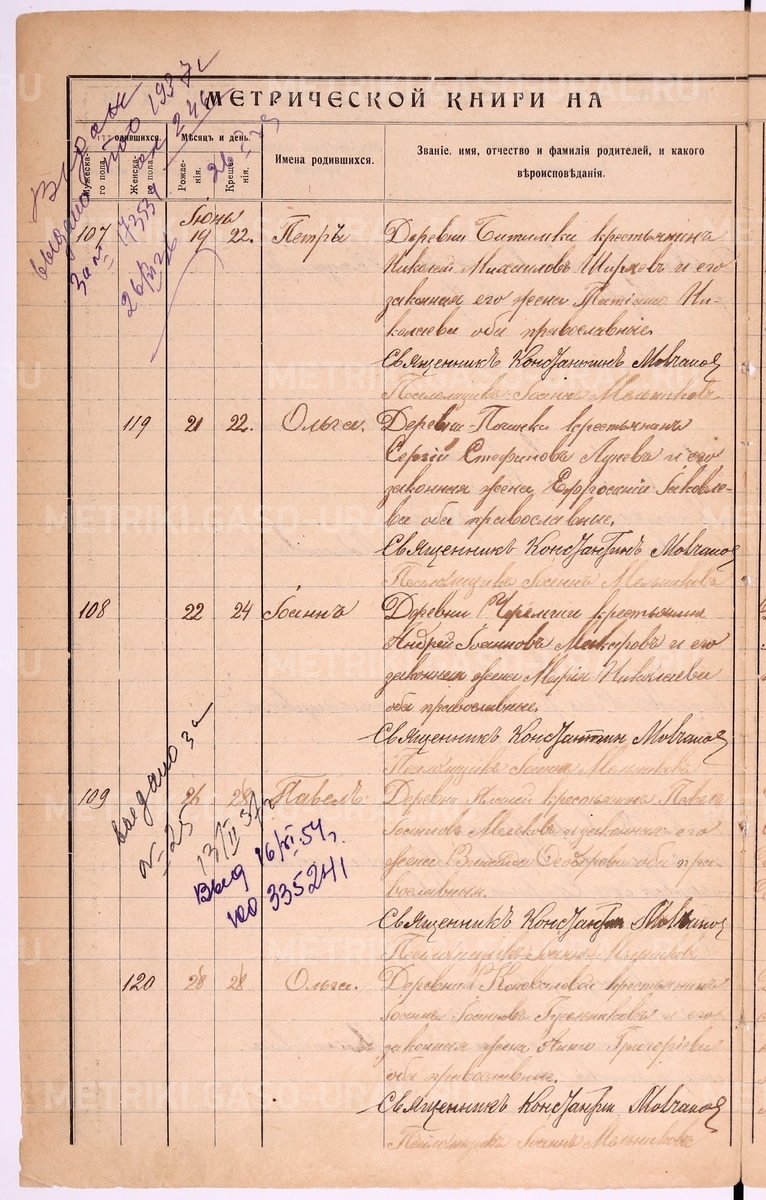 МЕТРИЧЕСКОЙ КНИГИ НА
родившихся.
Мѣсяцъ и день.
Мужеска-
го пола.
Женска-
го пола.
Рожде-
нія.
Креще-
нія.
Имена родившихся.
Званіе, имя, отчество и фамилія родителей, и какого
вѣроисповѣданія.
1937 г
26/VI
Іюнь
107 19 22. Петръ Деревни Битимки крестьянинъ
Николай Михаиловъ и его
законная его жена Татіана Ни-
колаева оба православные.
Священникъ Константинъ Мовчанов
Псаломщикъ Іоаннъ Мельниковъ
119 21 22. Ольга. Деревни Починка крестьянинъ
Сергій Стефановъ Луневъ и его
законная жена Ефросинія Іаковле-
ва оба православные.
Священникъ Константинъ Мовчанов
Псаломщикъ Іоаннъ Мельниковъ
108 22 24 Іоаннъ Деревни Черемши крестьянинъ
Андрей Іоанновъ Макаровъ и его
законная жена Марія Николаева
оба православные.
Священникъ Константин Мовчанов
Псаломщикъ Іоаннъ Мельниковъ
выдано за
№ 25
13/II 37 г
Выд 16/XI-54 г.
юо 335241
109 26 Павелъ Деревни крестьянинъ Павелъ
Іоанновъ и законная его
жена Ѳеодорова оба пра-
вославныя.
Священникъ Константин Мовчанов
Псаломщикъ Іоаннъ Мельниковъ
120 28 28 Ольга. Деревни Коноваловой крестьянинъ
Іоаннъ Іоанновъ Гусельниковъ и его
законная жена Анна Григоріева
оба православные.
Священникъ Константин Мовчанов
Псаломщикъ Іоаннъ Мельниковъ
METRIKI.GASO-URAL.RU